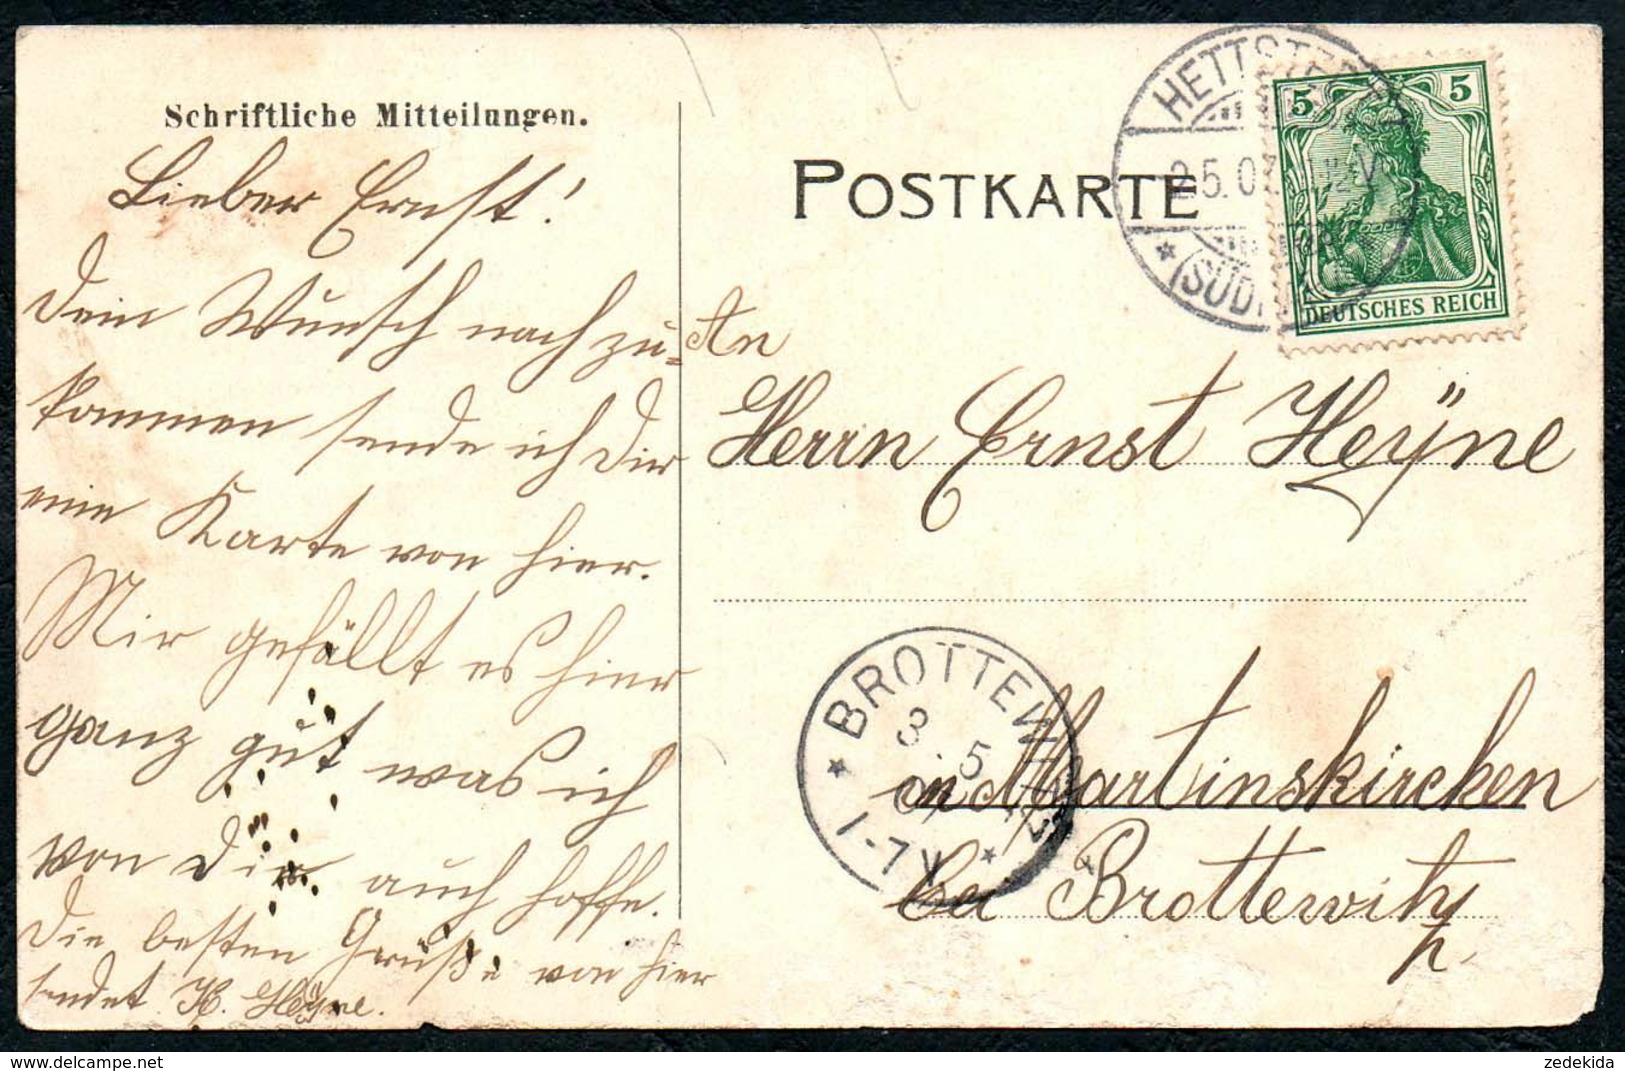 Schriftliche Mitteilungen.
Lieber Ernst!
Dein Wunsch nach zu=
kommen sende ich Dir
eine Karte von hier.
Mir gefällt es hier
ganz gut was ich
von Dir auch hoffe.
Die besten Grüße von hier
sendet K. Heÿne.
POSTKARTE
HETTSTEDT
2.5.07. V
(SÜDH
5 5
DEUTSCHES REICH
An
Herrn Ernst Heÿne
in Martinskirchen
bei Brottewitz
BROTTEWITZ
3.5
07
1-7V
delcampe.net
zedekida